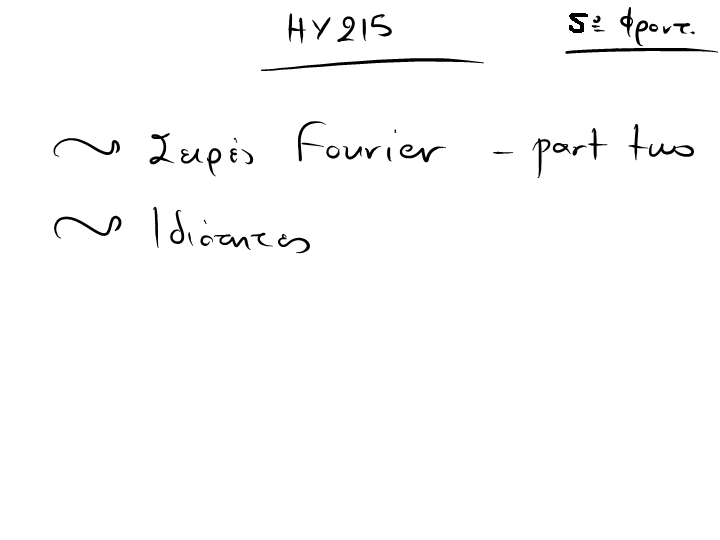 ΗΥ215 5º Φροντ.
~ Σειρές Fourier - part two
~ Ιδιότητες